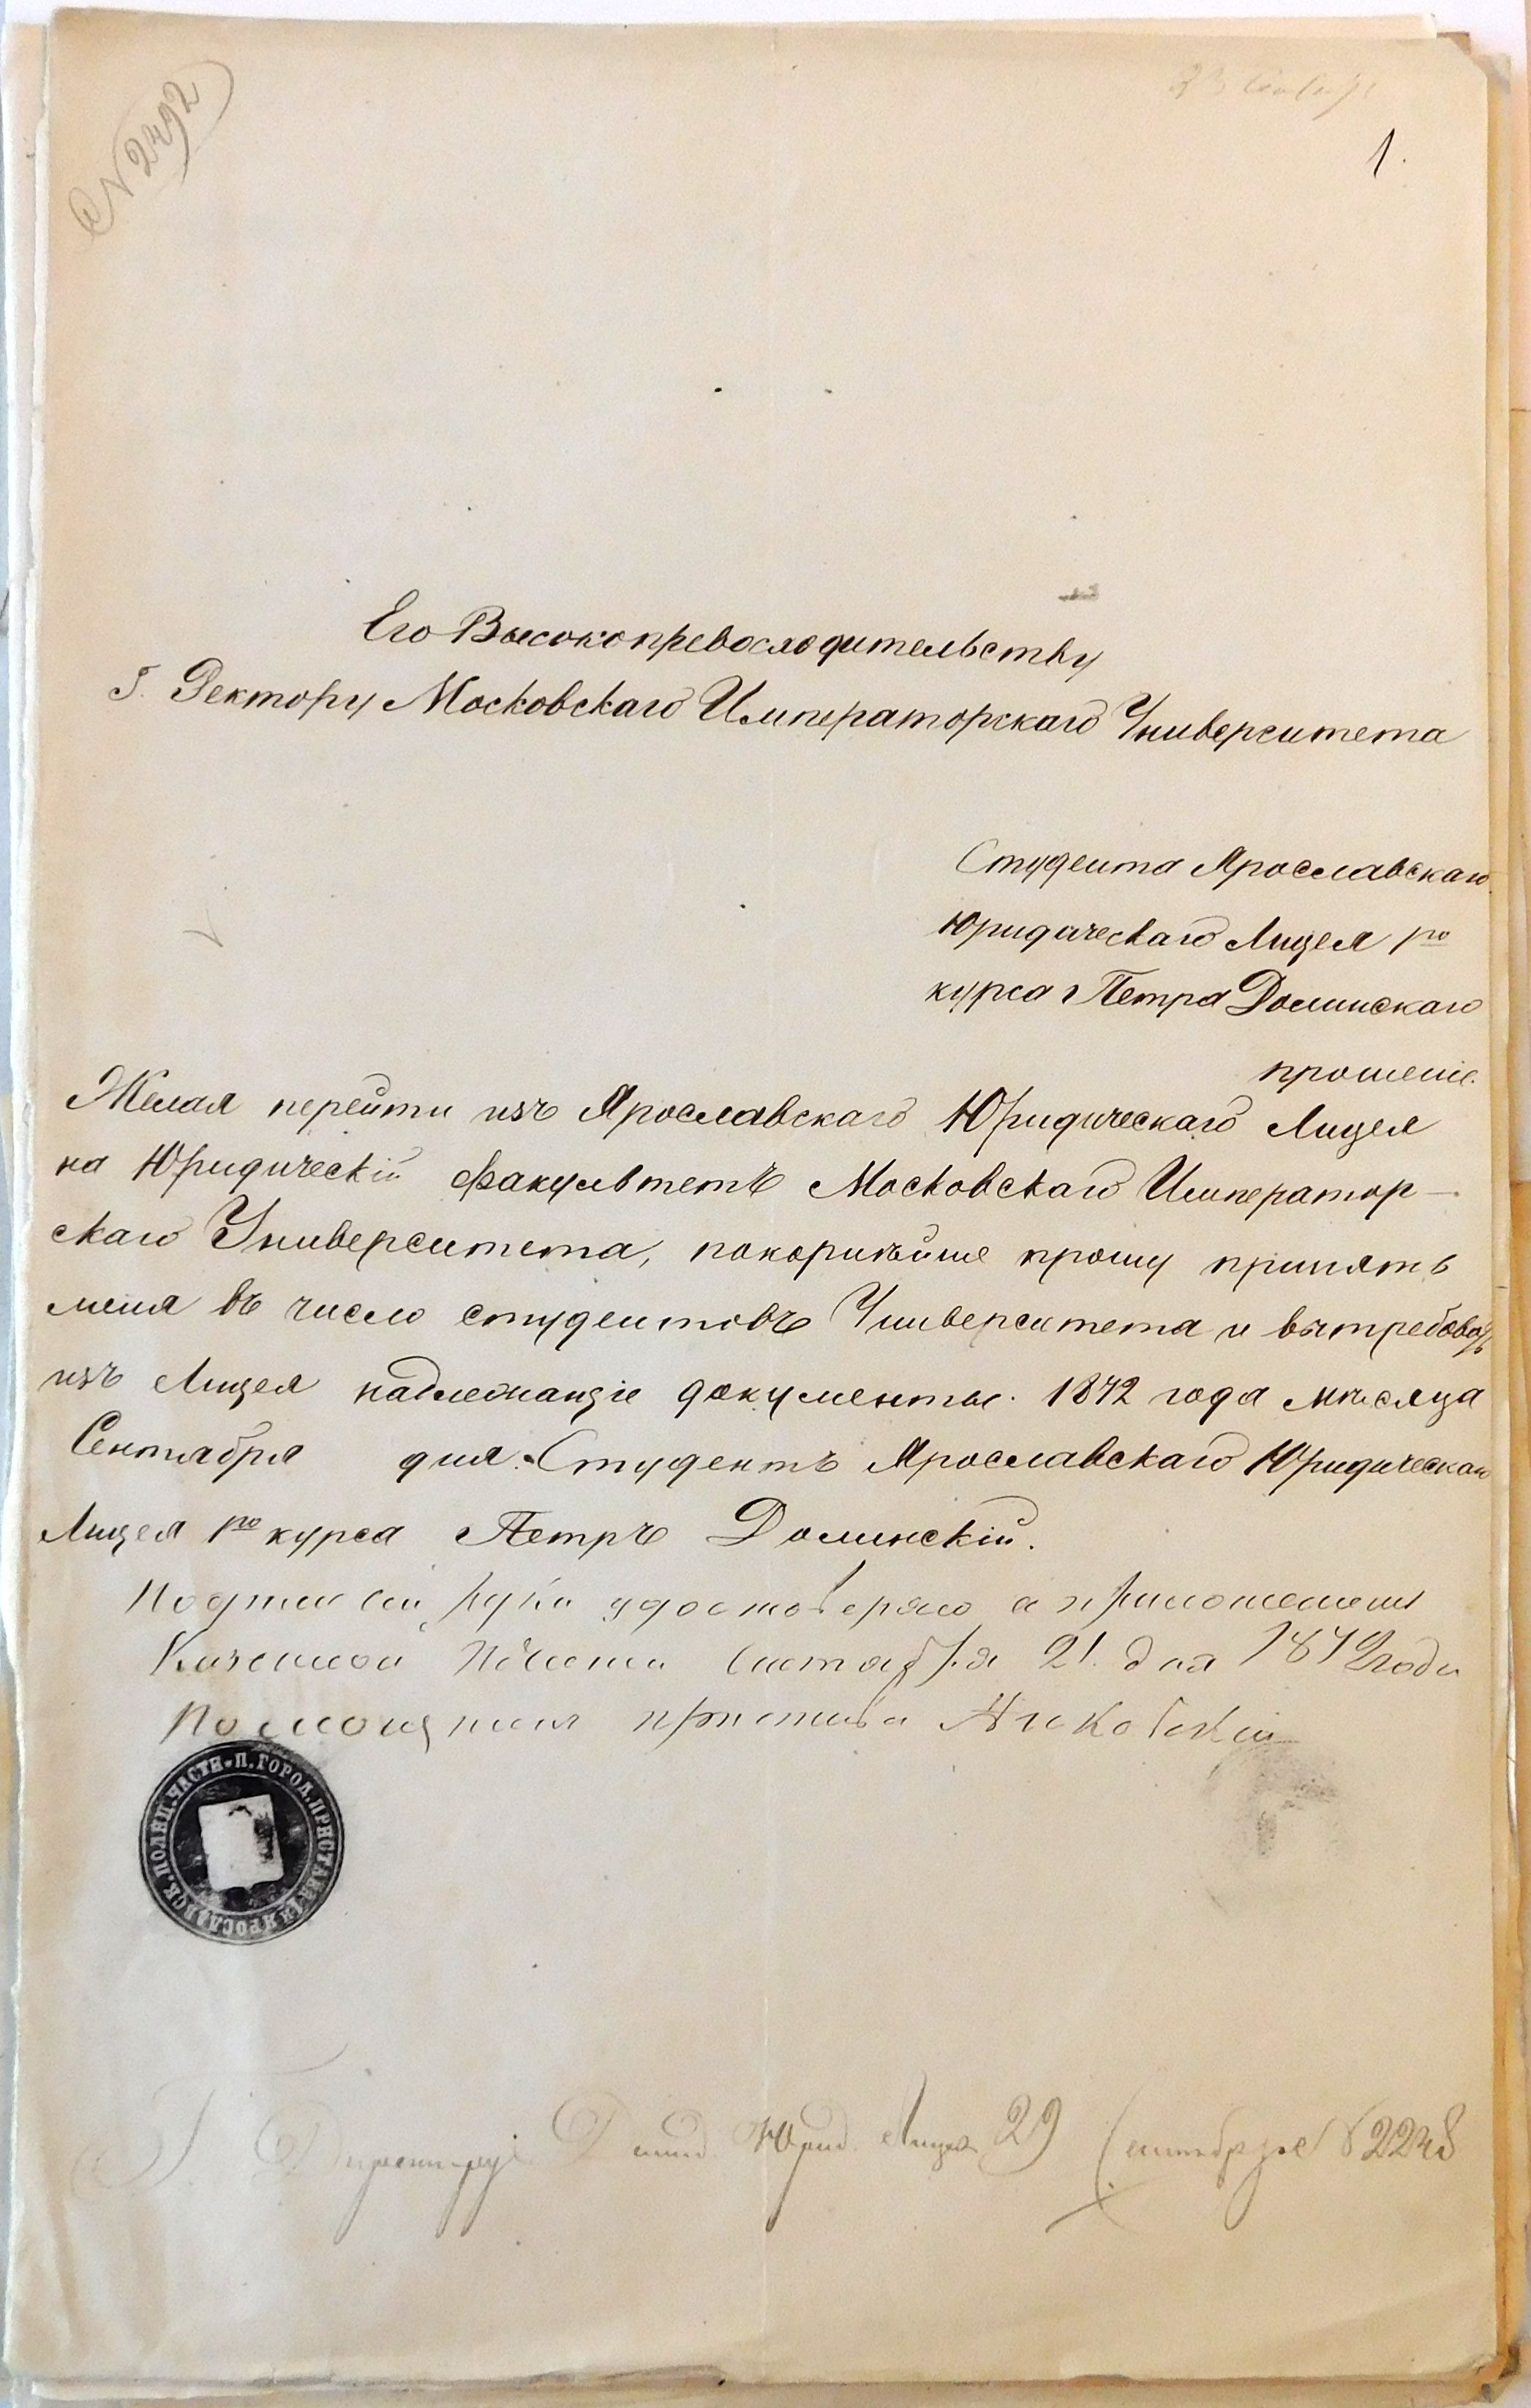 № 2492
1.
Его Высокопревосходительству
Г. Ректору Московскаго Императорскаго Университета
Студента Ярославскаго
Юридическаго Лицея 1го
курса Петра Долинскаго
прошеніе.
Желая перейти изъ Ярославскаго Юридическаго Лицея
на Юридическій факультетъ Московскаго Император-
скаго Университета, покорнѣйше прошу принять
меня въ число студентовъ Университета и вытребовать
изъ Лицея надлежащіе документы. 1872 года мѣсяца
Сентября дня. Студентъ Ярославскаго Юридическаго
Лицея 1го курса Петръ Долинскій.
руки удостоверяю с приложеніемъ
Казенной печати Сентября 21 дня 1872 года
Помощникъ пристава
П. ГОРОД. ПРИСТАВА 1Й ЯРОСЛАВСК. ПОЛИЦ. ЧАСТИ
Г. Директору Юрид. Лицея 29 Сентября № 2248